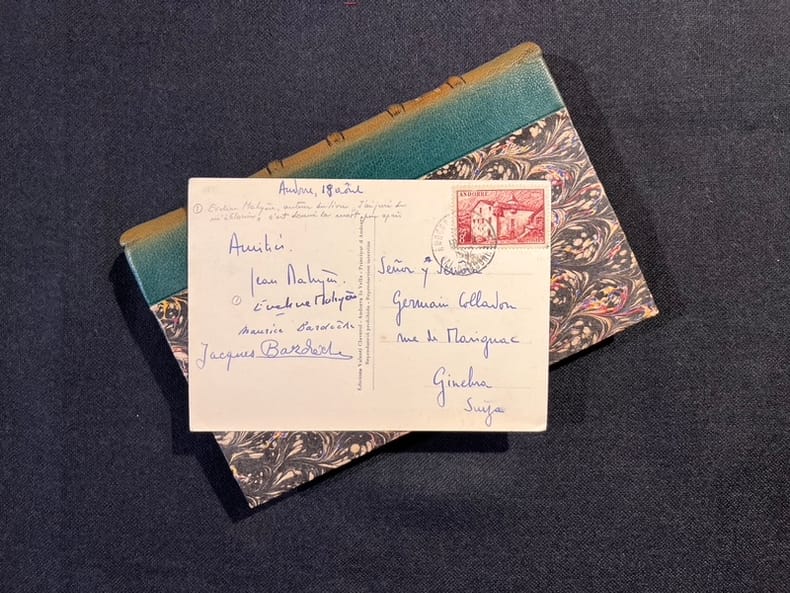 Andorre, 18 août
① Eveline Mahyère, auteur du livre
s'est donné la mort peu après
Amitiés.
Jean Mahyère
① Eveline Mahyère
Maurice Bardèche
Jacques Bardèche
Edicions Valentí Claverol - Andorra la Vella - Principat d'Andorra
Reproducció prohibida - Reproduction interdite
ANDORRE
Señor y Señora
Germain Colladon
rue de Marignac
Ginebra
Suiza